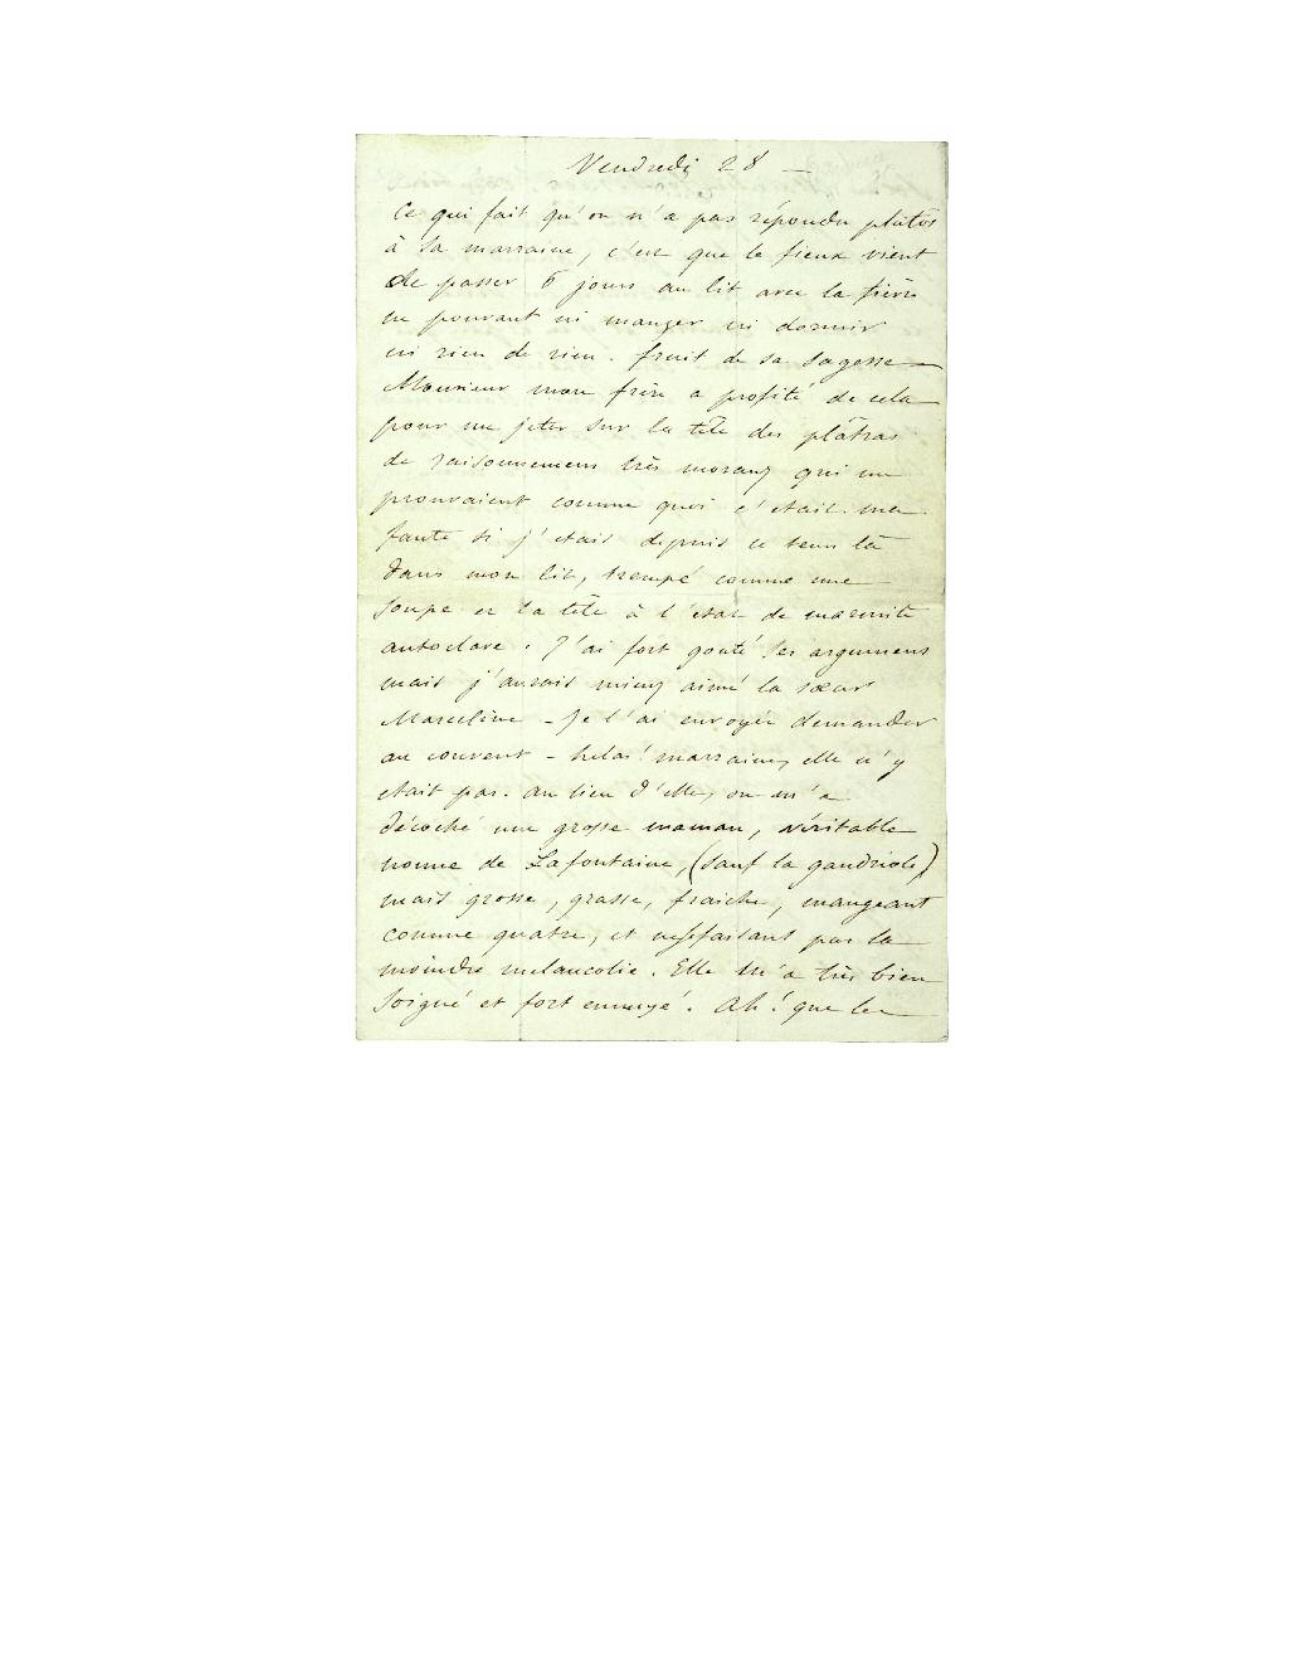 Vendredi 28 —
Ce qui fait qu'on n'a pas répondu plutôt
à sa marraine, c'est que le fieux vient
de passer 6 jours au lit avec la fièvre
ne pouvant ni manger ni dormir
ni rien de rien. fruit de sa sagesse —
Monsieur mon frère a profité de cela
pour me jeter sur la tête des plâtras
de raisonnemens très moraux qui me
prouvaient comme quoi c'etait ma
faute si j'etais depuis ce tems là
dans mon lit, trempé comme une
soupe et la tête à l'etat de marmite
autoclave. J'ai fort gouté ses argumens
mais j'aurais mieux aimé la sœur
Marceline – Je l'ai envoyée demander
au couvent – helas! marraine, elle n'y
etait pas. au lieu d'elle, on m'a
décoché une grosse maman, véritable
nonne de Lafontaine, (sauf la gaudriole)
mais grosse, grasse, fraiche, mangeant
comme quatre, et ne se faisant pas la
moindre melancolie. Elle m'a très bien
soigné et fort ennuyé. Ah! que les